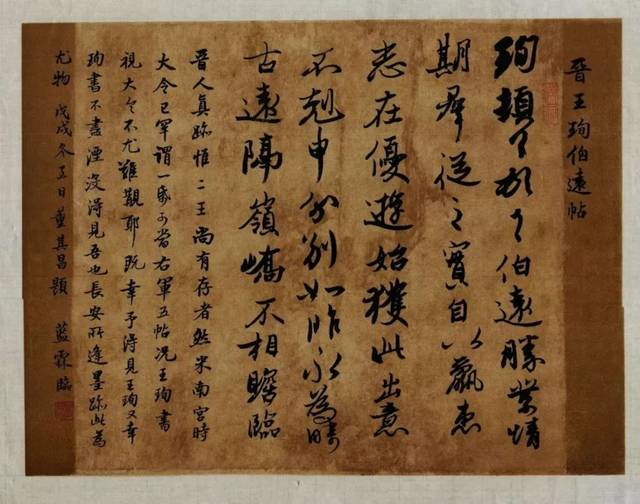 晉王珣伯遠帖
珣頓〻首〻伯遠勝業情
期群從之寶自以羸患
志在優遊始獲此出意
不剋申分別如昨永為疇
古遠隔嶺嶠不相瞻臨
晉人真跡惟二王尚有存者然米南宮時
大令已罕謂一紙可當右軍五帖況王珣書
視大令不尤難覯耶既幸予得見王珣又幸
珣書不盡湮沒得見吾也長安所逢墨跡此為
尤物戊戌冬五日董其昌題 藍霖臨